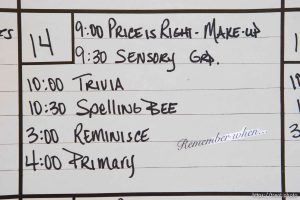 14
9:00 PRICE IS RIGHT - MAKE-UP
9:30 SENSORY GRP.
10:00 TRIVIA
10:30 SPELLING BEE
3:00 REMINISCE
Remember when...
4:00 PRIMARY